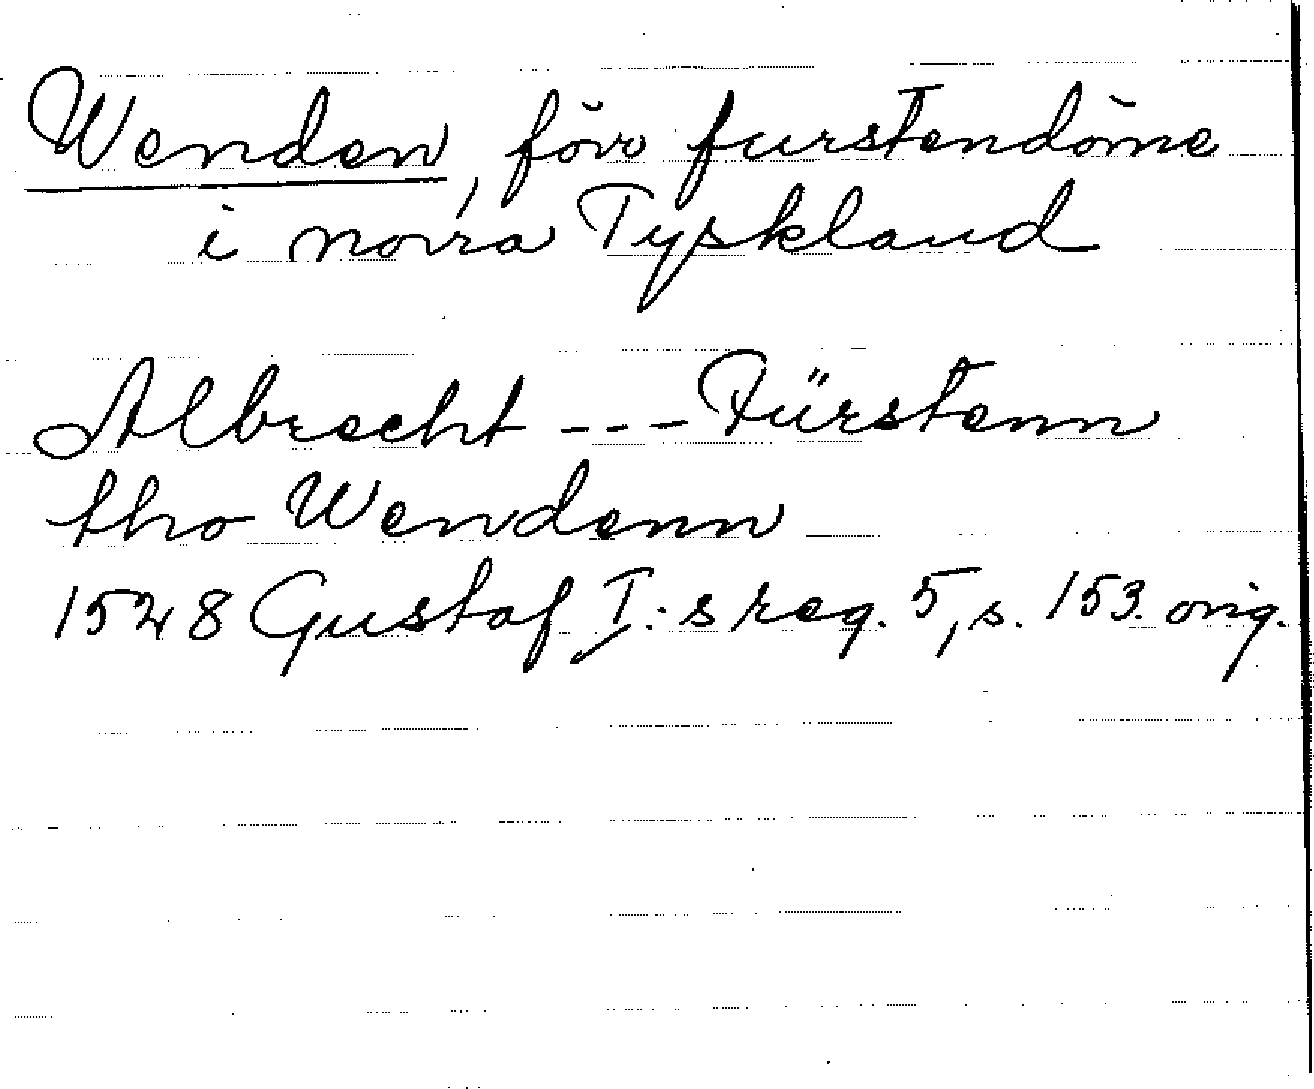 Wenden, förr furstendöme
i norra Tyskland
Albrecht --- Fürstenn
tho Wendenn
1528 Gustaf I:s reg. 5, s. 153. orig.